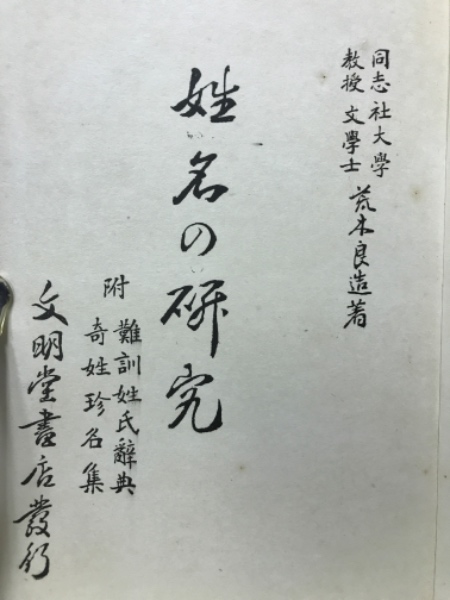 同志社大學
教授 文學士 荒木良造著
姓名の研究
附 難訓姓氏辭典
奇姓珍名集
文明堂書店發行